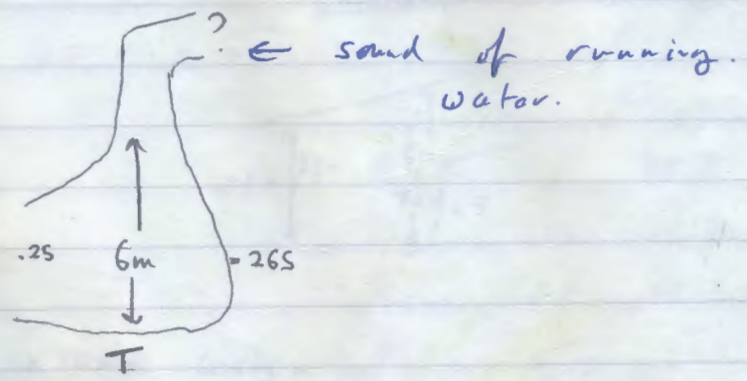 ? ← sound of running.
water.
.25 6m - 265
T